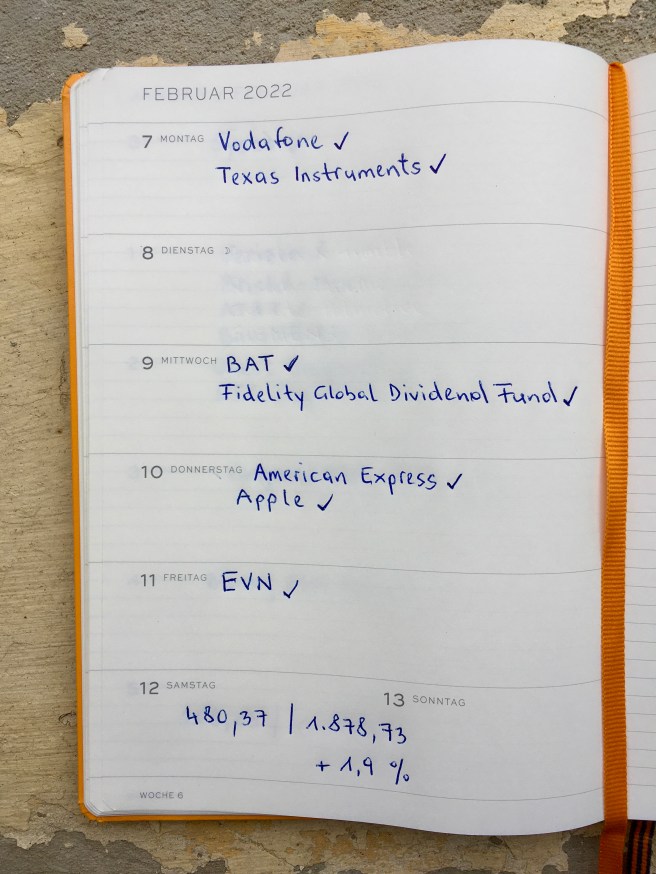 FEBRUAR 2022
7 MONTAG Vodafone ✓
Texas Instruments ✓
8 DIENSTAG ☽
9 MITTWOCH BAT ✓
Fidelity Global Dividend Fund ✓
10 DONNERSTAG American Express ✓
Apple ✓
11 FREITAG EVN ✓
12 SAMSTAG
13 SONNTAG
480,37 | 1.878,73
+ 1,9 %
WOCHE 6